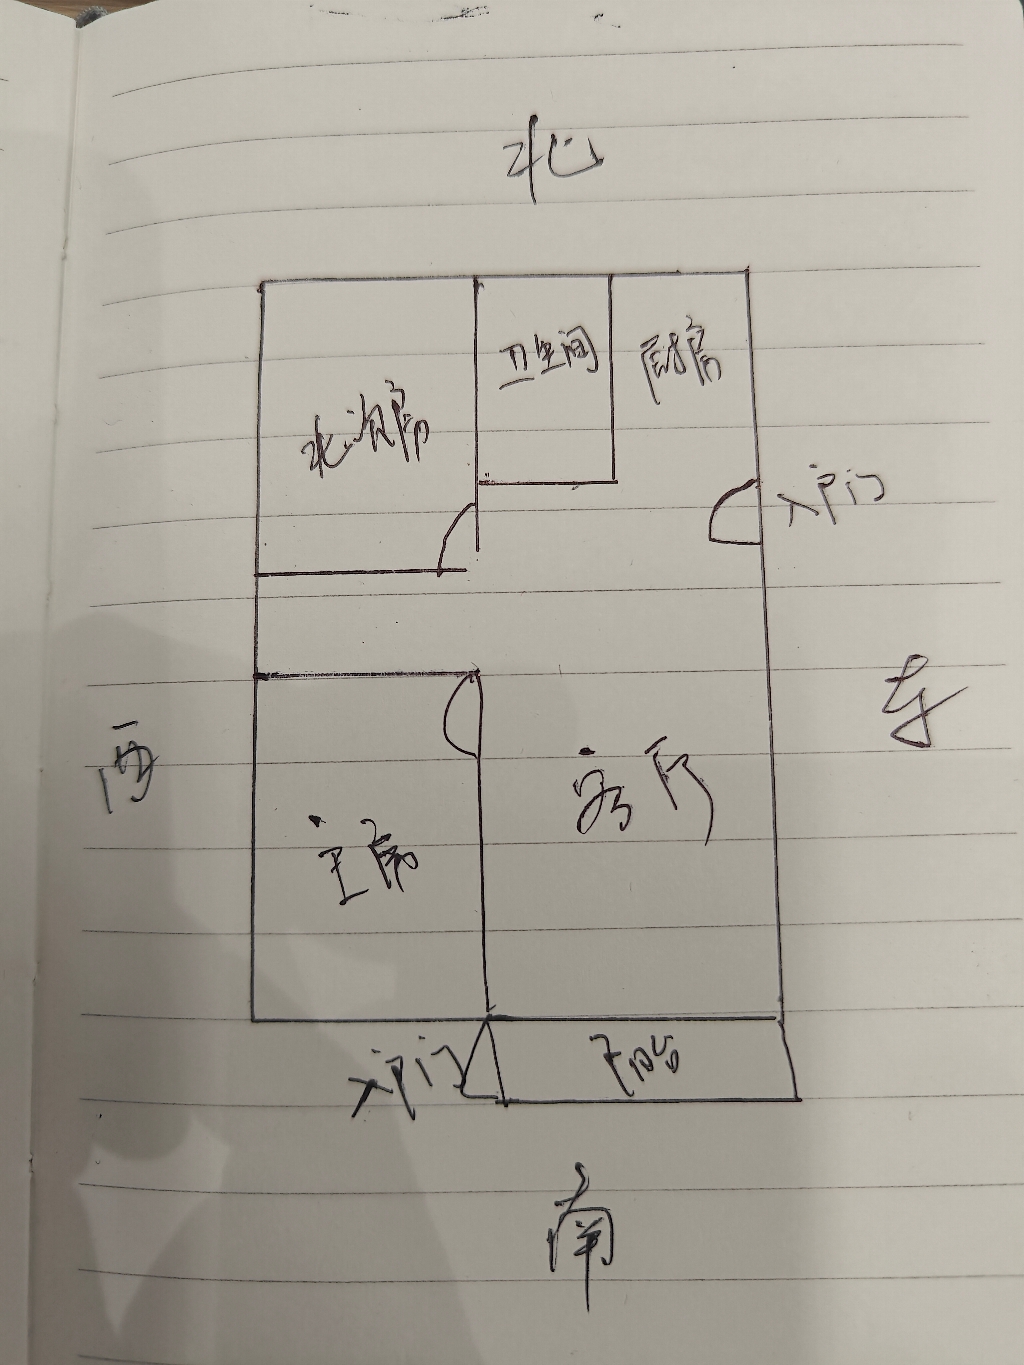 北
卫生间
厨房
北次房
入户门
东
西
客厅
主房
入户门
阳台
南